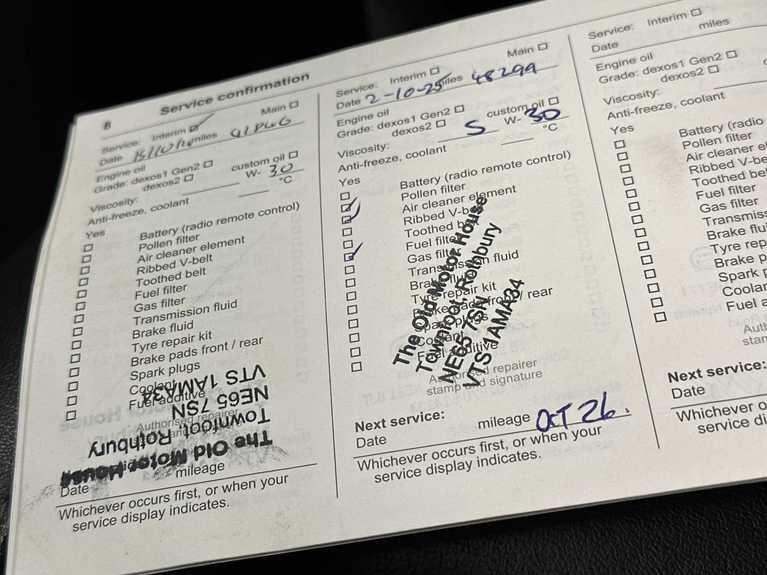 8
Service confirmation
Service: Interim ☑ Main ☐
Date miles
Engine oil
Grade: dexos1 Gen2 ☐ custom oil ☐
dexos2 ☐
Viscosity: W- 30
Anti-freeze, coolant °C
Yes
☐ Battery (radio remote control)
☐ Pollen filter
☐ Air cleaner element
☐ Ribbed V-belt
☐ Toothed belt
☐ Fuel filter
☐ Gas filter
☐ Transmission fluid
☐ Brake fluid
☐ Tyre repair kit
☐ Brake pads front / rear
☐ Spark plugs
☐ Coolant
☐ Fuel additive
Authorised repairer
The Old Motor House
Townfoot, Rothbury
NE65 7SN
VTS 1AMA34
Date mileage
Whichever occurs first, or when your
service display indicates.
Service: Interim ☐ Main ☐
Date 2-10-25 miles 48299
Engine oil
Grade: dexos1 Gen2 ☐ custom oil ☐
dexos2 ☐
Viscosity: 5 W- 30
Anti-freeze, coolant °C
Yes
Battery (radio remote control)
Pollen filter
Air cleaner element
Ribbed V-belt
Toothed be
Fuel filte
Gas filte
Transmission fluid
Brake fluid
Tyre repair kit
Brake pads front / rear
Spark plugs
Coolant
Fuel additive
Authorised repairer
stamp and signature
The Old Motor House
Townfoot, Rothbury
NE65 7SN
VTS 1AMA34
Next service:
Date mileage OCT 26.
Whichever occurs first, or when your
service display indicates.
Service: Interim ☐
Date miles
Engine oil
Grade: dexos1 Gen2 ☐
dexos2 ☐
Viscosity:
Anti-freeze, coolant
Yes
☐ Battery (radio
☐ Pollen filter
☐ Air cleaner el
☐ Ribbed V-be
☐ Toothed bel
☐ Fuel filter
☐ Gas filter
☐ Transmiss
☐ Brake flu
☐ Tyre rep
☐ Brake p
☐ Spark p
☐ Coolar
☐ Fuel a
Auth
stan
Next service:
Date
Whichever o
service di